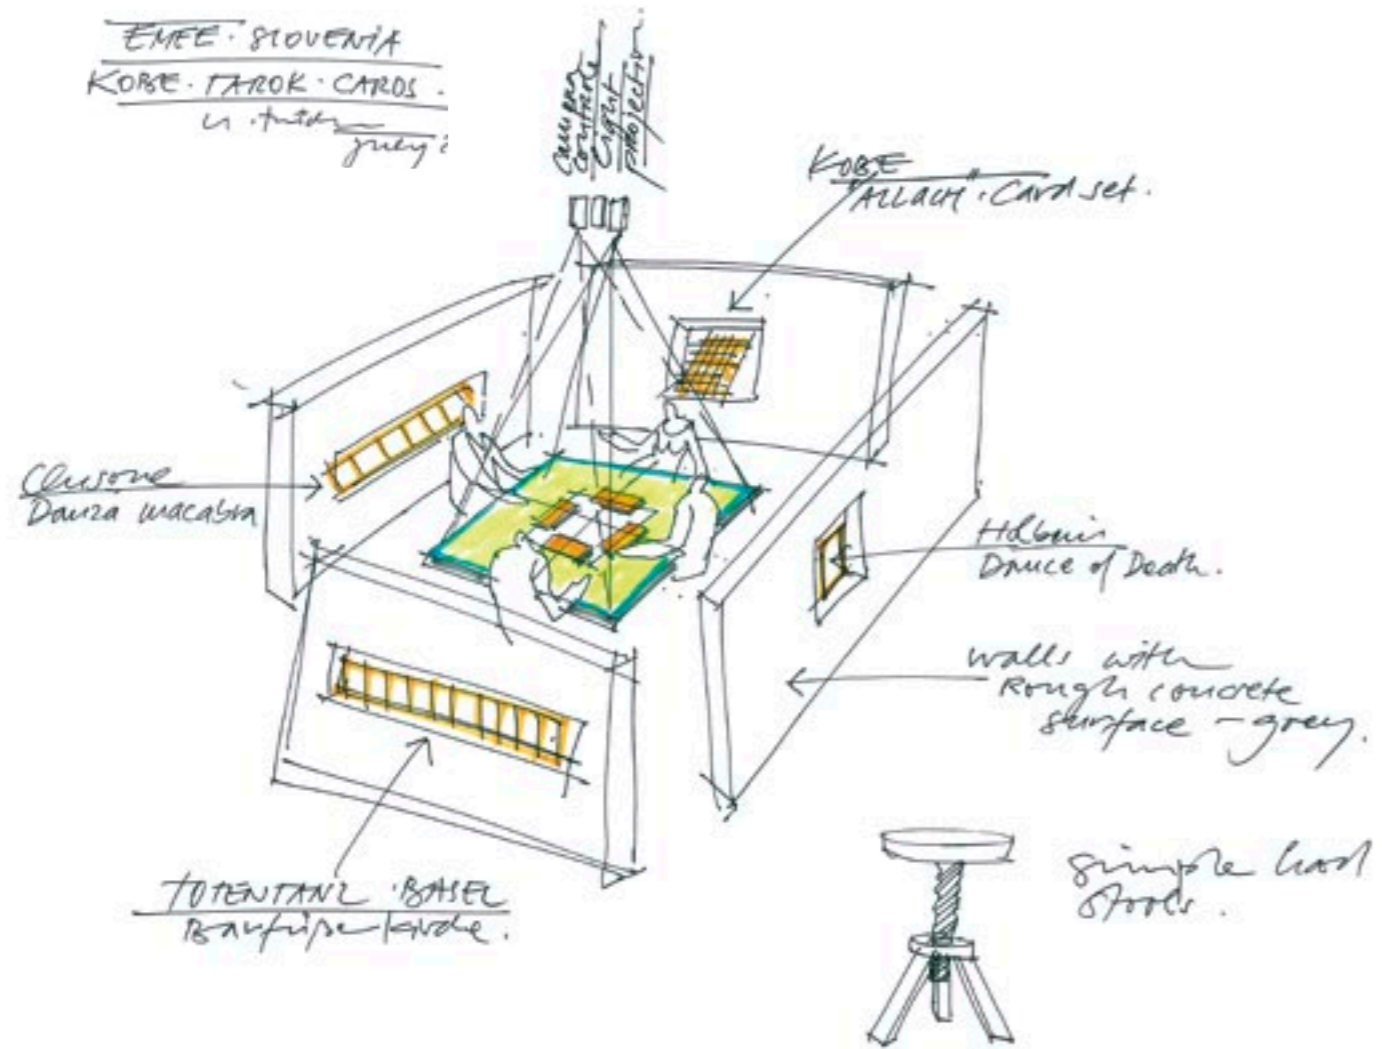 EMEE · SLOVENIA
KOBE · TAROK · CARDS.
camera
controle
light
projection
KOBE
"ALLACH" · Card set.
Clusone
Danza macabra
Holbein
Dance of Death.
walls with
Rough concrete
surface – grey.
TOTENTANZ · BASEL
simple hard
stools.